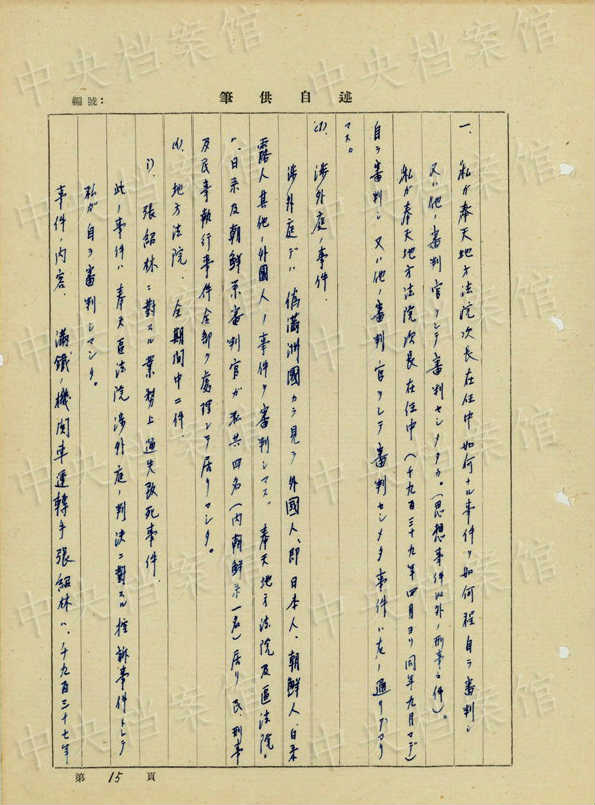 編號：
筆供自述
一、私ガ奉天地方法院次長在任中如何ナル事件ヲ如何程自ラ審判シ
又ハ他ノ審判官ヲシテ審判セシメタカ。（思想事件以外ノ刑事事件）。
私ガ奉天地方法院次長在任中（一千九百三十九年四月ヨリ同年九月マデ）
自ラ審判シ又ハ他ノ審判官ヲシテ審判セシメタ事件ハ左ノ通リデアリ
マス。
(1) 涉外庭ノ事件．
涉外庭デハ偽滿洲國カラ見タ外國人、即日本人、朝鮮人、白系
露人其他ノ外國人ノ事件ヲ審判シマス。奉天地方法院及區法院
ハ、日系及朝鮮系審判官ガ私共四名（内朝鮮系一名）居リ民、刑事
及民事執行事件全部ヲ處理シテ居リマシタ。
(イ) 地方法院、全期間中二件．
1) 張紹林ニ對スル業務上過失致死事件．
此ノ事件ハ奉天區法院涉外庭ノ判決ニ對スル控訴事件トシテ
私ガ自ラ審判シマシタ。
事件ノ内容．滿鐵ノ機関車運轉手張紹林ハ、一千九百三十七年
第 15 頁
中央档案馆